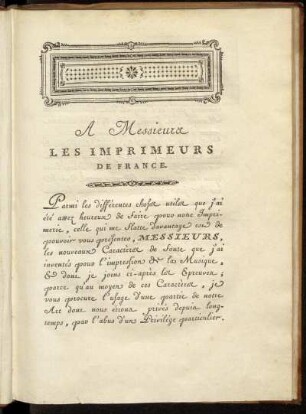 A Messieurs
LES IMPRIMEURS
DE FRANCE.
Parmi les différentes choses utiles que j'ai
été assez heureux de faire pour notre Impri-
merie, celle qui me flatte davantage est de
pouvoir vous présenter, MESSIEURS,
les nouveaux Caracteres de Fonte que j'ai
inventés pour l'impression de la Musique,
& dont je joins ci-après les Epreuves;
parce qu'au moyen de ces Caracteres, je
vous procure l'usage d'une partie de notre
Art dont nous étions privés depuis long-
temps, par l'abus d'un Privilége particulier.